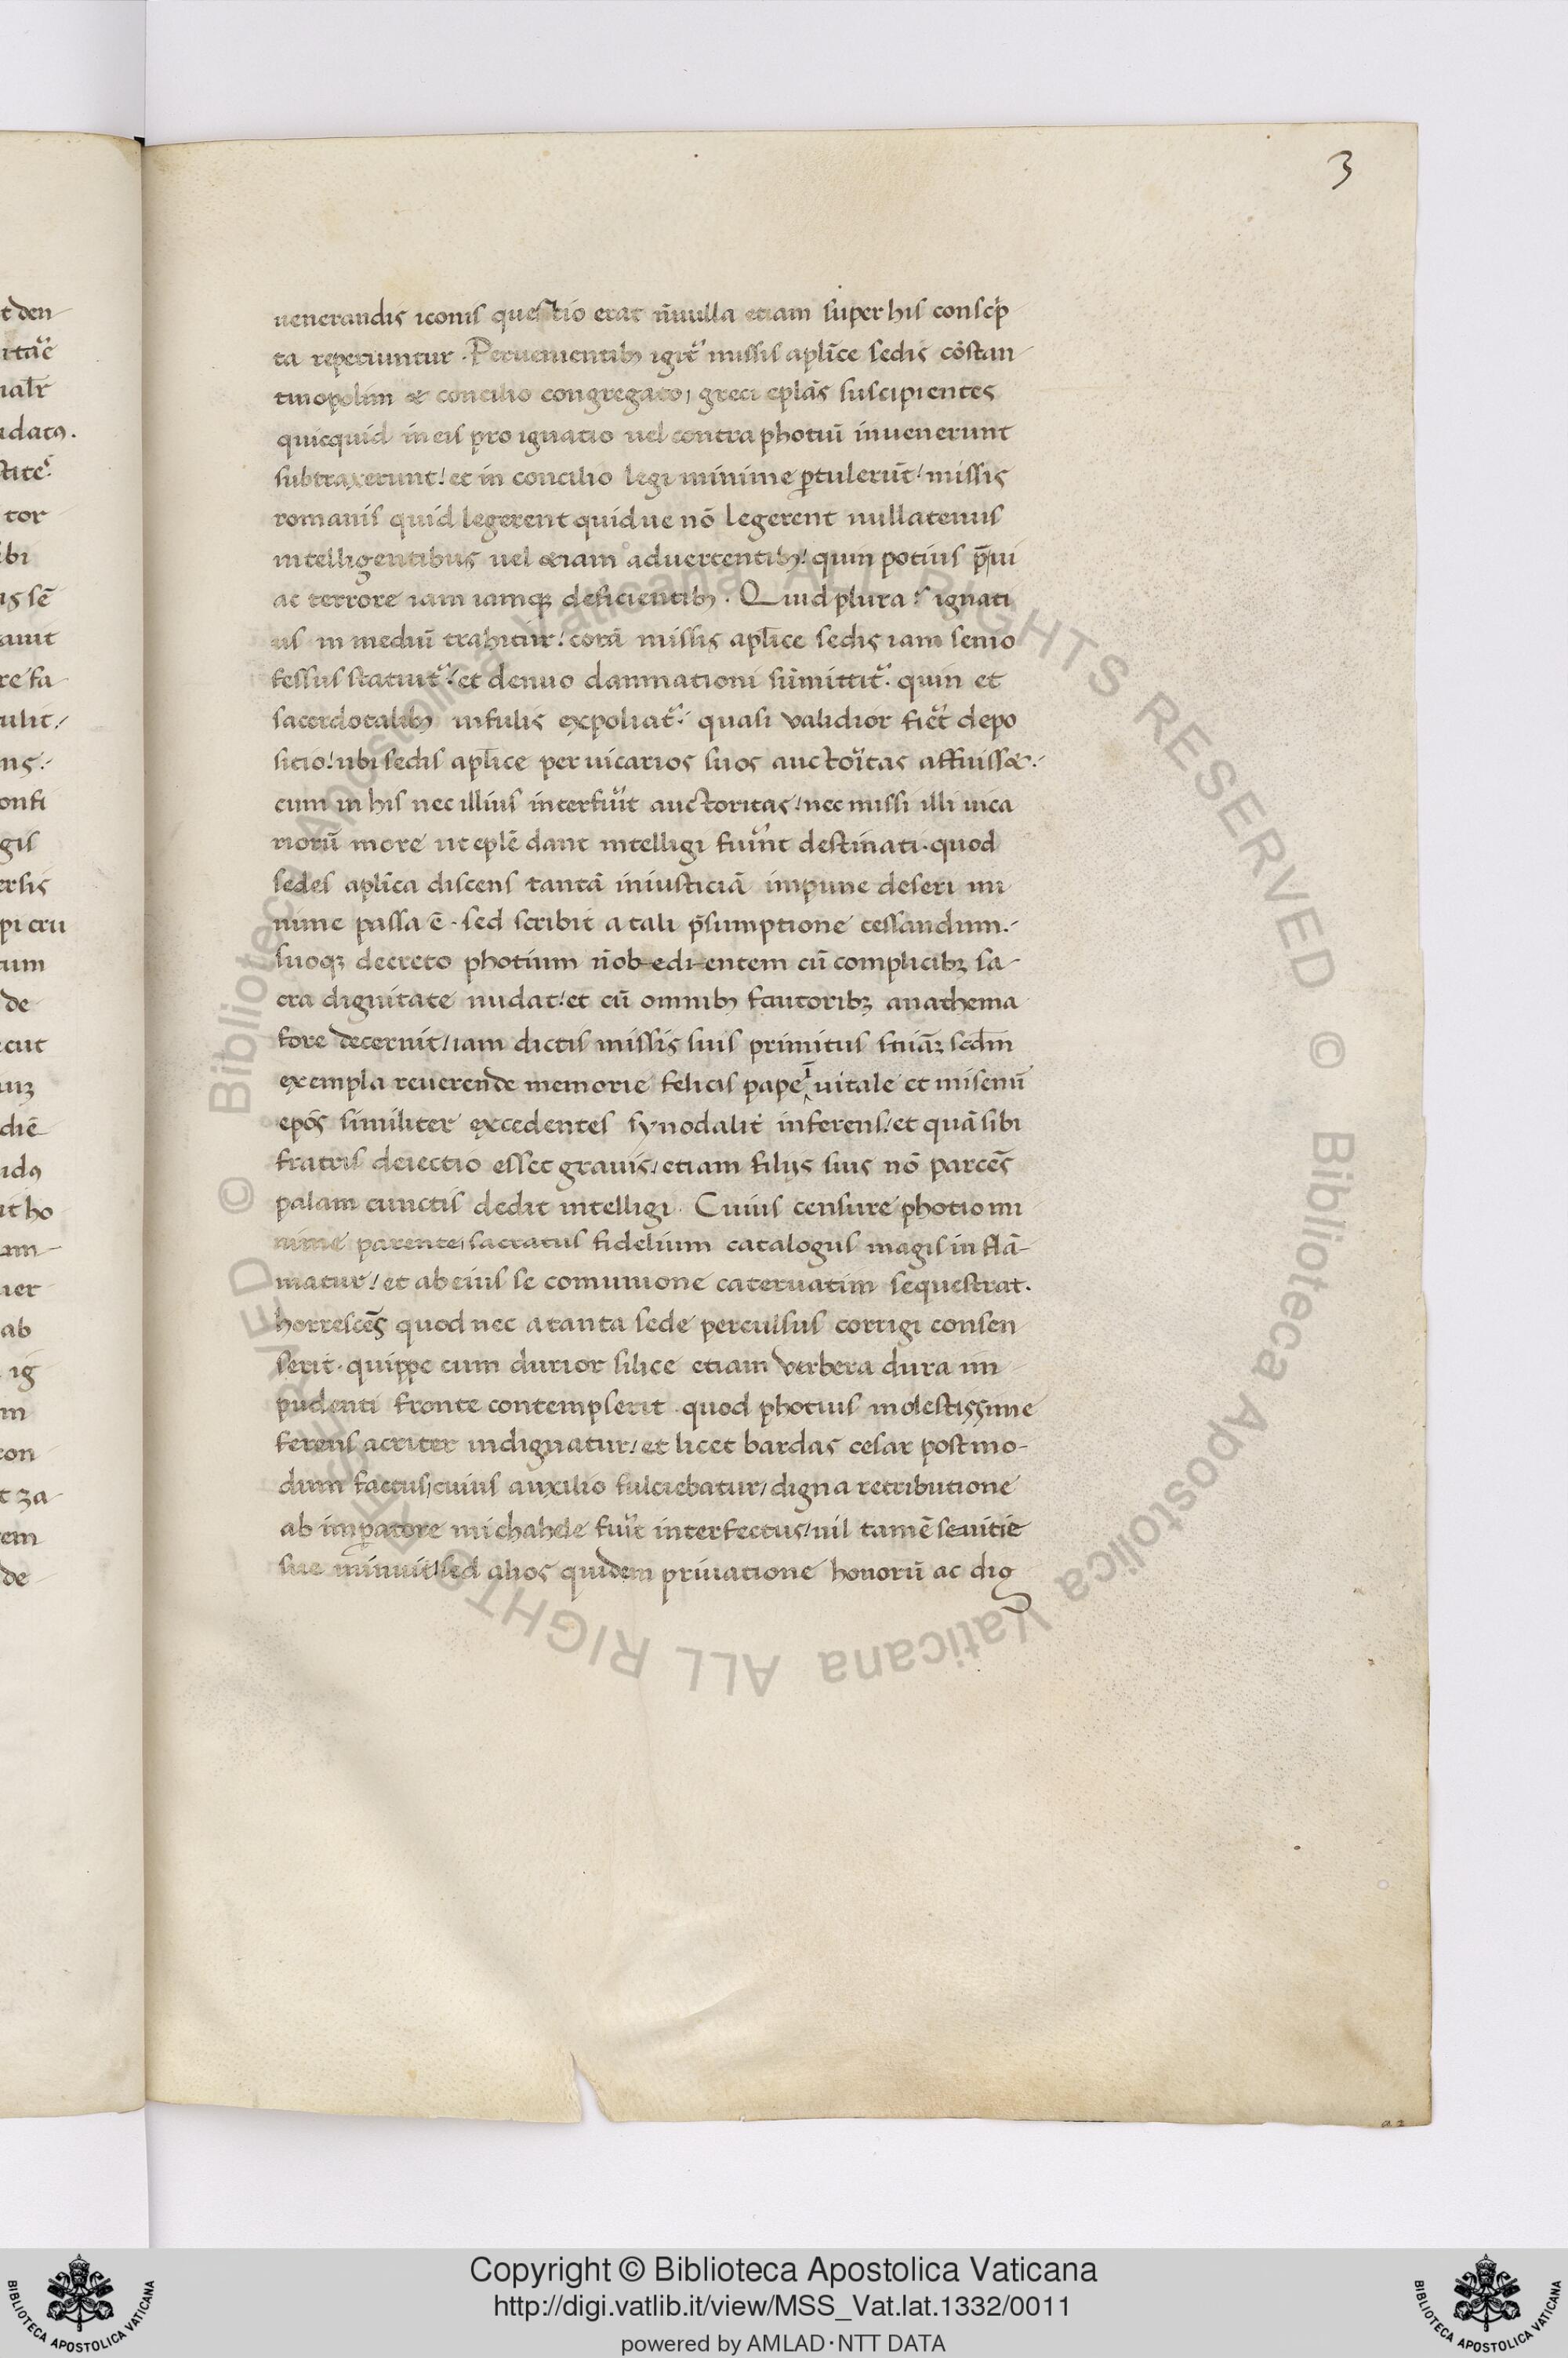 3
uenerandis iconis questio erat nn̄ulla etiam super his conscͥp
ta reperiuntur. Peruenientibꝫ igit᷑ missis aplīce sedis cōstan
tinopolim & concilio congregato, greci eplās suscipientes
quicquid in eis pro ignatio uel contra photiū inuenerunt
subtraxerunt/ et in concilio legi minime ꝑtulerūt/ missis
romanis quid legerent quidue nō legerent nullatenus
intelligentibus uel &iam aduertentibꝫ/ quin potius
ac terrore iam iamqꝫ deficientibꝫ. Quid plura? ignati
us in mediū trahitur/ corā missis aplīce sedis iam senio
fessus statuit᷑/ et denuo damnationi sūmittit᷑. quin et
sacerdotalibꝫ infulis expoliat᷑. quasi validior fiet᷑ depo
sitio/ ubi sedis aplīce per uicarios suos auctoͥtas affuiss&.
cum in his nec illius interfuͥt auctoritas/ nec missi illi uica
riorū more ut eplē dant intelligi fuͥnt destinati. quod
sedes aplīca discens tantā iniusticiā impune deferi mi
nime passa ē. sed scribit a tali p̄sumptione cessandum.
suoqꝫ decreto photium n̄ obedientem cū complicibꝫ sa
cra dignitate nudat/ et cū omnibꝫ fautoribꝫ anathema
fore decernit/ iam dictis missis suis primitus sniāꝫ scdm̄
exempla reuerende memorie felicis pape ī uitale et misenū
epōs similiter excedentes synodalit᷑ inferens/ et quā sibi
fratris deiectio esset grauis/ etiam filijs suis nō parcēs
palam cunctis dedit intelligi. Cuius censure photio mi
nime parente, sacratus fidelium catalogus magis inflā-
matur/ et ab eius se comunione cateruatim sequestrat.
horrescēs quod nec a tanta sede perculsus corrigi consen
serit. quippe cum durior silice etiam verbera dura im
pudenti fronte contempserit. quod photius molestissime
ferens acriter indignatur/ et licet bardas cesar postmo-
dum factus, cuius auxilio fulciebatur/ digna retributione
ab imꝑatore michahele fuͥt interfectus/ nil tamē seuitie
sue minuit/ sed alios quidem priuatione honorū ac dig
a 2
t den
ialr̄
tor
bi
auit
re fa-
ulit/
onfi
gis
ersis
pi cru
tum
de
cut
diē
ut ho
uer
ab
ig
m
con
t za-
em
de
© Biblioteca Apostolica Vaticana ALL RIGHTS RESERVED © Biblioteca Apostolica Vaticana ALL RIGHTS RESERVED
BIBLIOTECA APOSTOLICA VATICANA
Copyright © Biblioteca Apostolica Vaticana
http://digi.vatlib.it/view/MSS_Vat.lat.1332/0011
powered by AMLAD·NTT DATA
BIBLIOTECA APOSTOLICA VATICANA